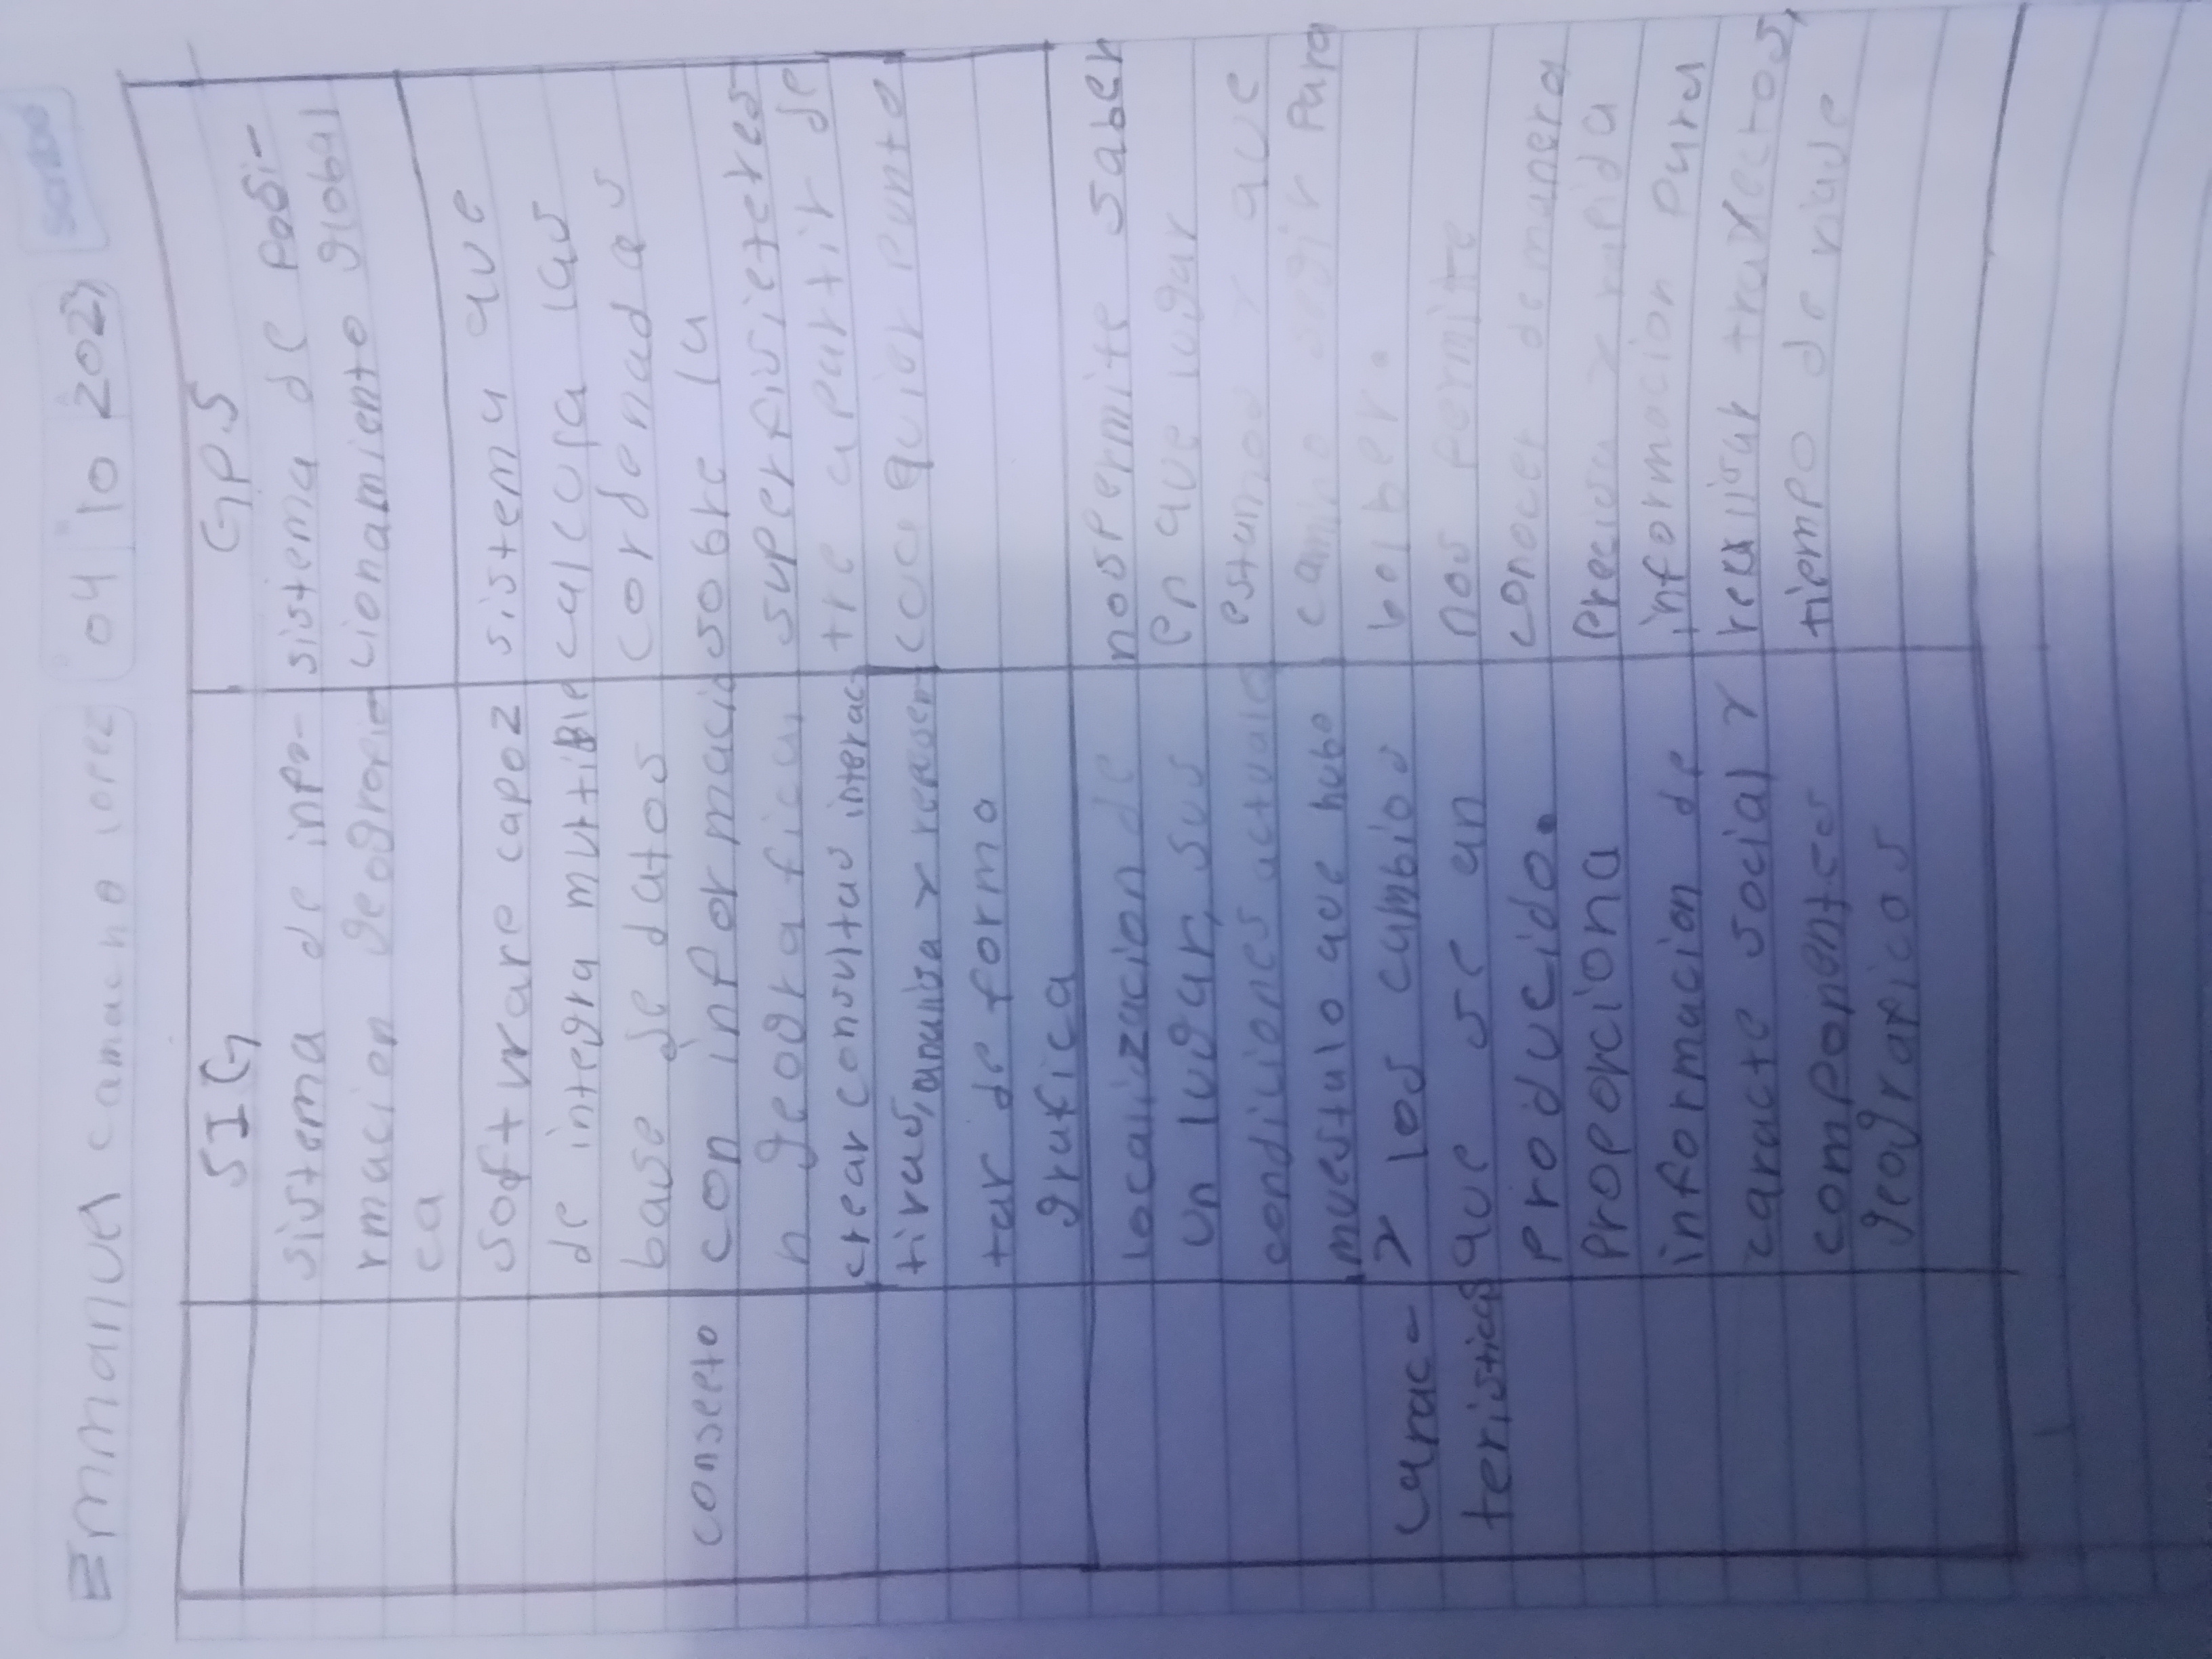 Emmanuel camacho lopez 04 10 2023
SIG
GPS
sistema de info-
rmacion geografi
ca
sistema de posi-
cionamiento global
conseto
software capaz
de integra multiple
base de datos
con informacio
n geografica,
crear consultas interac-
tivas, analisa y represen-
tar de forma
grafica
sistema que
calcula las
cordenadas
sobre la
superfisieteres
tre apartir de
cualquier punto
carac-
teristicas
localizacion de
un lugar, sus
condiciones actuales
muestalo que hubo
y los cambios
que se an
producido.
Proporciona
informacion de
caracte social y
componentes
geograficos
nospermite saber
en que lugar
estamos y que
camino segir para
bolber.
nos permite
conocer de manera
precisa y rapida
informacion para
realisar trayectos,
tiempo de viaje